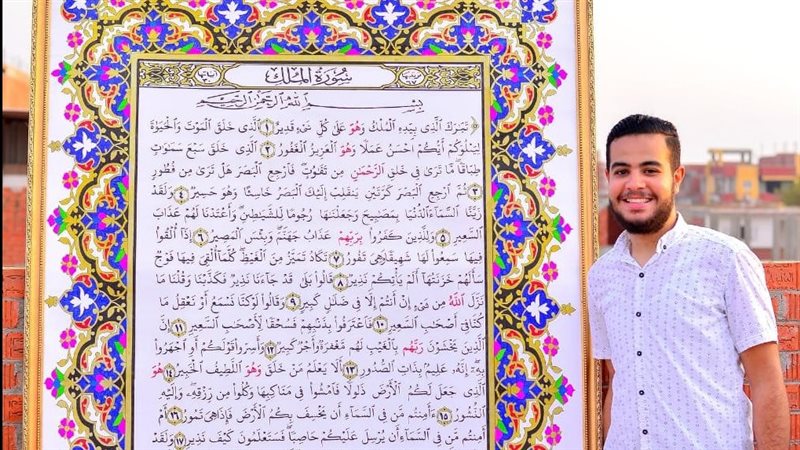 سورة الملك
بسم الله الرحمن الرحيم
تَبَٰرَكَ الَّذِى بِيَدِهِ الْمُلْكُ وَهُوَ عَلَىٰ كُلِّ شَىْءٍ قَدِيرٌ ١ الَّذِى خَلَقَ الْمَوْتَ وَالْحَيَوٰةَ
لِيَبْلُوَكُمْ أَيُّكُمْ أَحْسَنُ عَمَلًا وَهُوَ الْعَزِيزُ الْغَفُورُ ٢ الَّذِى خَلَقَ سَبْعَ سَمَٰوَٰتٍ
طِبَاقًا مَّا تَرَىٰ فِى خَلْقِ الرَّحْمَٰنِ مِن تَفَٰوُتٍ فَارْجِعِ الْبَصَرَ هَلْ تَرَىٰ مِن فُطُورٍ
٣ ثُمَّ ارْجِعِ الْبَصَرَ كَرَّتَيْنِ يَنقَلِبْ إِلَيْكَ الْبَصَرُ خَاسِئًا وَهُوَ حَسِيرٌ ٤ وَلَقَدْ
زَيَّنَّا السَّمَآءَ الدُّنْيَا بِمَصَٰبِيحَ وَجَعَلْنَٰهَا رُجُومًا لِّلشَّيَٰطِينِ وَأَعْتَدْنَا لَهُمْ عَذَابَ
السَّعِيرِ ٥ وَلِلَّذِينَ كَفَرُوا بِرَبِّهِمْ عَذَابُ جَهَنَّمَ وَبِئْسَ الْمَصِيرُ ٦ إِذَآ أُلْقُوا
فِيهَا سَمِعُوا لَهَا شَهِيقًا وَهِىَ تَفُورُ ٧ تَكَادُ تَمَيَّزُ مِنَ الْغَيْظِ كُلَّمَآ أُلْقِىَ فِيهَا فَوْجٌ
سَأَلَهُمْ خَزَنَتُهَآ أَلَمْ يَأْتِكُمْ نَذِيرٌ ٨ قَالُوا بَلَىٰ قَدْ جَآءَنَا نَذِيرٌ فَكَذَّبْنَا وَقُلْنَا مَا
نَزَّلَ اللَّهُ مِن شَىْءٍ إِنْ أَنتُمْ إِلَّا فِى ضَلَٰلٍ كَبِيرٍ ٩ وَقَالُوا لَوْ كُنَّا نَسْمَعُ أَوْ نَعْقِلُ مَا
كُنَّا فِىٓ أَصْحَٰبِ السَّعِيرِ ١٠ فَاعْتَرَفُوا بِذَنۢبِهِمْ فَسُحْقًا لِّأَصْحَٰبِ السَّعِيرِ ١١ إِنَّ
الَّذِينَ يَخْشَوْنَ رَبَّهُم بِالْغَيْبِ لَهُم مَّغْفِرَةٌ وَأَجْرٌ كَبِيرٌ ١٢ وَأَسِرُّوا قَوْلَكُمْ أَوِ اجْهَرُوا
بِهِۦٓ إِنَّهُۥ عَلِيمٌۢ بِذَاتِ الصُّدُورِ ١٣ أَلَا يَعْلَمُ مَنْ خَلَقَ وَهُوَ اللَّطِيفُ الْخَبِيرُ ١٤ هُوَ
الَّذِى جَعَلَ لَكُمُ الْأَرْضَ ذَلُولًا فَامْشُوا فِى مَنَاكِبِهَا وَكُلُوا مِن رِّزْقِهِۦ وَإِلَيْهِ
النُّشُورُ ١٥ ءَأَمِنتُم مَّن فِى السَّمَآءِ أَن يَخْسِفَ بِكُمُ الْأَرْضَ فَإِذَا هِىَ تَمُورُ ١٦ أَمْ
أَمِنتُم مَّن فِى السَّمَآءِ أَن يُرْسِلَ عَلَيْكُمْ حَاصِبًا فَسَتَعْلَمُونَ كَيْفَ نَذِيرِ ١٧ وَلَقَدْ